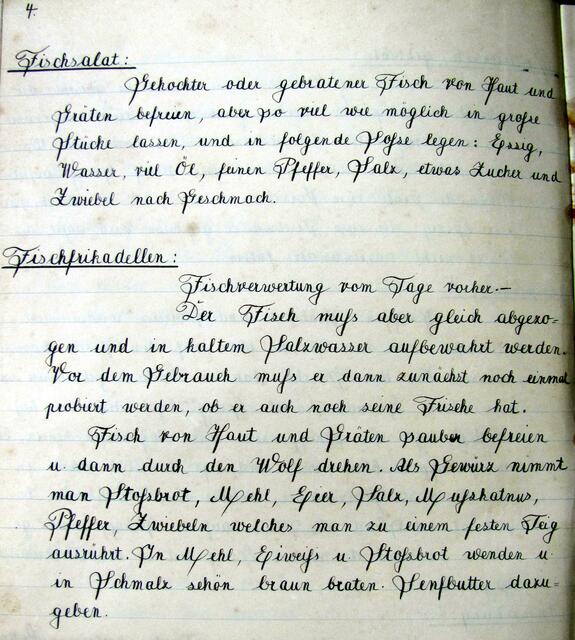 4.
Fischsalat:
Gekochter oder gebratener Fisch von Haut und
Gräten befreien, aber so viel wie möglich in große
Stücke lassen, und in folgende Soße legen: Essig,
Wasser, viel Öl, feinen Pfeffer, Salz, etwas Zucker und
Zwiebel nach Geschmack.
Fischfrikadellen:
Fischverwertung vom Tage vorher.—
Der Fisch muß aber gleich abgezo-
gen und in kaltem Salzwasser aufbewahrt werden.
Vor dem Gebrauch muß er dann zunächst noch einmal
probiert werden, ob er auch noch seine Frische hat.
Fisch von Haut und Gräten sauber befreien
u. dann durch den Wolf drehen. Als Gewürz nimmt
man Stoßbrot, Mehl, Eier, Salz, Mußkatnus,
Pfeffer, Zwiebeln welches man zu einem festen Teig
ausrührt. In Mehl, Eiweiß u. Stoßbrot wenden u.
in Schmalz schön braun braten. Senfbutter dazu-
geben.